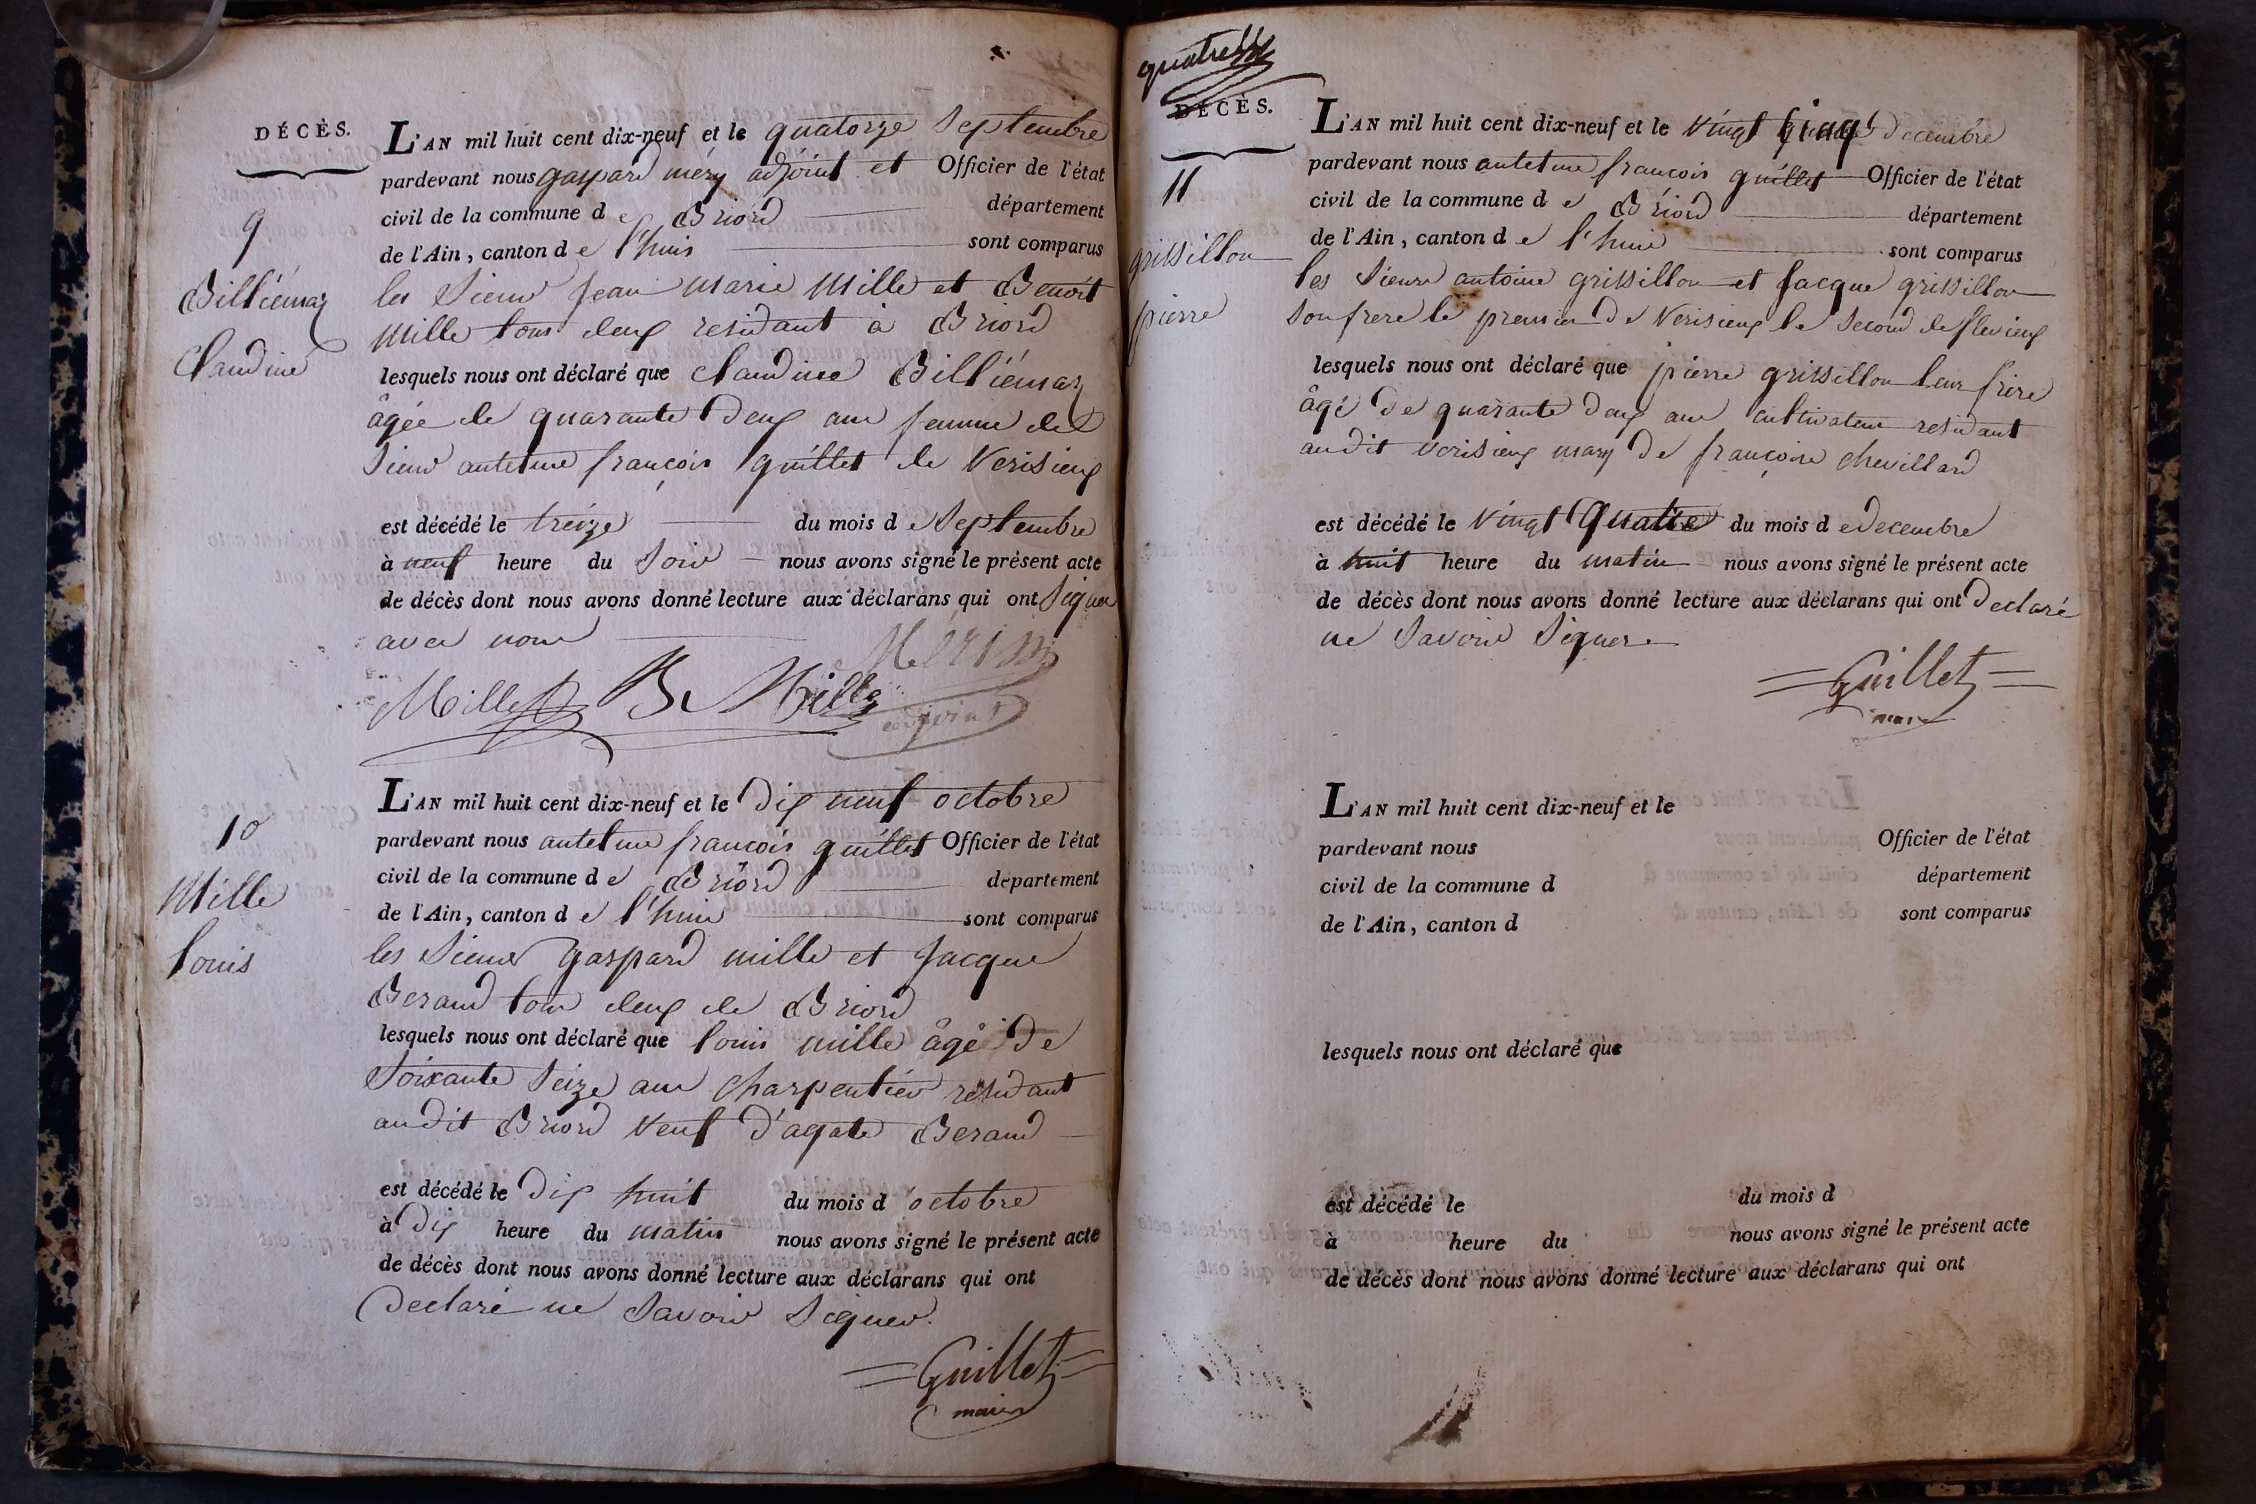 DÉCÈS.
9
Billiémaz
Claudine
L'AN mil huit cent dix-neuf et le quatorze Septembre
pardevant nous gaspard méry adjoint et Officier de l'état
civil de la commune de Briord département
de l'Ain, canton de l'huis sont comparus
les Sieurs jean marie Mille et Benoit
Mille tous deux residant à Briord
lesquels nous ont déclaré que Claudine Billiémaz
âgée de quarante deux ans femme de
Sieur antelme françois guillet de Verisieux
est décédé le treize du mois de Septembre
à neuf heure du Soir nous avons signé le présent acte
de décès dont nous avons donné lecture aux déclarans qui ont Signer
avec nous
Mille B. Mille
adjoint
10
Mille
louis
L'AN mil huit cent dix-neuf et le dix neuf octobre
pardevant nous antelme françois guillet Officier de l'état
civil de la commune de Briord département
de l'Ain, canton de l'huis sont comparus
les Sieurs gaspard mille et Jacque
Beraud tous deux de Briord
lesquels nous ont déclaré que louis mille âgé de
Soixante Seize ans charpentier residant
audit Briord veuf d'agate Beraud
est décédé le dix huit du mois d'octobre
à dix heure du matin nous avons signé le présent acte
de décès dont nous avons donné lecture aux déclarans qui ont
declaré ne Savoir Signer.
Guillet
maire
DÉCÈS.
11
grissillon
pierre
L'AN mil huit cent dix-neuf et le vingt cinq decembre
pardevant nous antelme françois guillet Officier de l'état
civil de la commune de Briord département
de l'Ain, canton de l'huis sont comparus
les Sieurs antoine grissillon et Jacque grissillon
Son frere le premier de Verisieux le Second de flevieux
lesquels nous ont déclaré que pierre grissillon leur frère
âgé de quarante deux ans cultivateur residant
audit verisieux mary de françoise chevillard
est décédé le vingt quatre du mois de decembre
à huit heure du matin nous avons signé le présent acte
de décès dont nous avons donné lecture aux déclarans qui ont declaré
ne Savoir Signer
Guillet
maire
L'AN mil huit cent dix-neuf et le
pardevant nous Officier de l'état
civil de la commune d département
de l'Ain, canton d sont comparus
lesquels nous ont déclaré que
est décédé le du mois d
à heure du nous avons signé le présent acte
de décès dont nous avons donné lecture aux déclarans qui ont